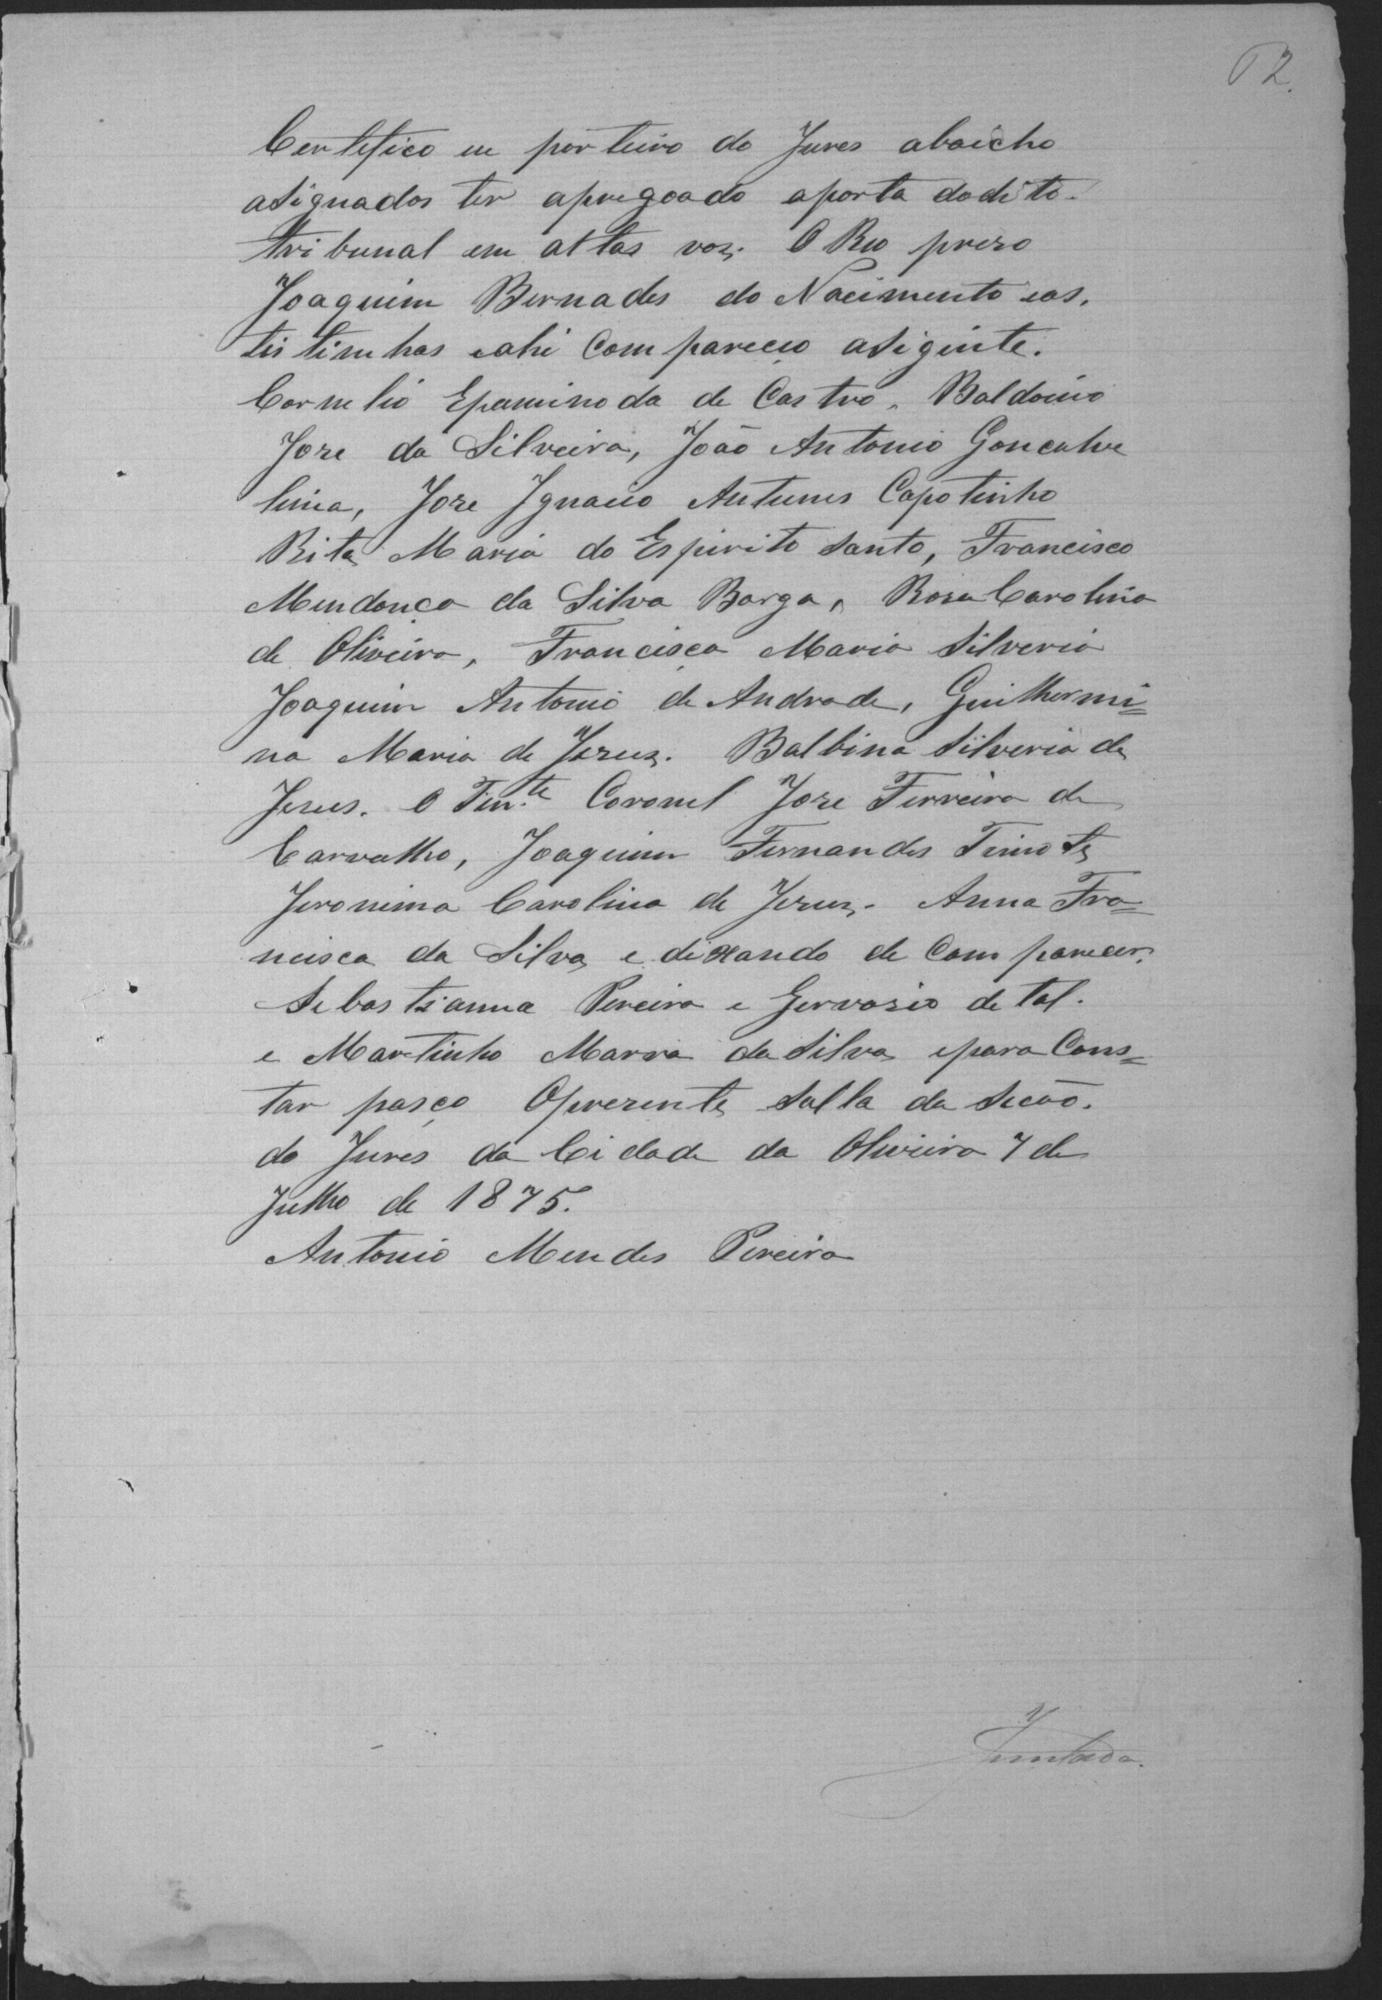 62.
Certefico eu porteiro do Jures aboicho
asignados ter apregoado aporta dodito.
tribunal em altas vos. O Reo prezo
Joaquim Bernades do Nacimento eas.
testimhas eahi Compareceo asiginte.
Cornelio Epaminoda de Castro, Baldoino
Joze da Silveira, João Antonio Goncalve
lima, Joze Ignacio Antunes Capotinho
Rita Maria do Espirito Santo, Francisco
Mendonça da Silva Barga, Roza Carolina
de Oliveira, Francisca Maria Silveria
Joaquim Antonio de Andrade, Guilhermi=
na Maria de Jezus. Balbina Silveria de
Jezus. O Ten.te Coronel Joze Ferreira de
Carvalho, Joaquim Fernandes Timote
Jeronima Carolina de Jezus. Anna Fra=
ncisca da Silva e dixando de Comparecer.
Sebastianna Pereira e Gervasio de tal.
e Martinho Marra da Silva epara Cons=
tar pasço Oprezente Salla da Secão.
do Jures da Cidade da Oliveira 7 de
Julho de 1875.
Antonio Mendes Pereira
Juntada.